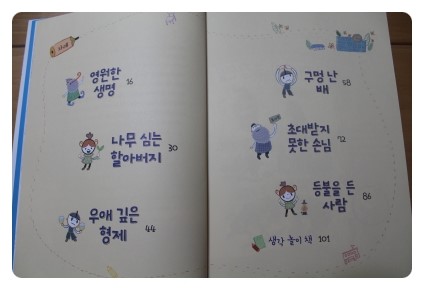 영원한
생명 16
나무 심는
할아버지 30
우애 깊은
형제 44
구멍 난
배 58
초대받지
못한 손님 72
등불을 든
사람 86
생각 놀이 책 101